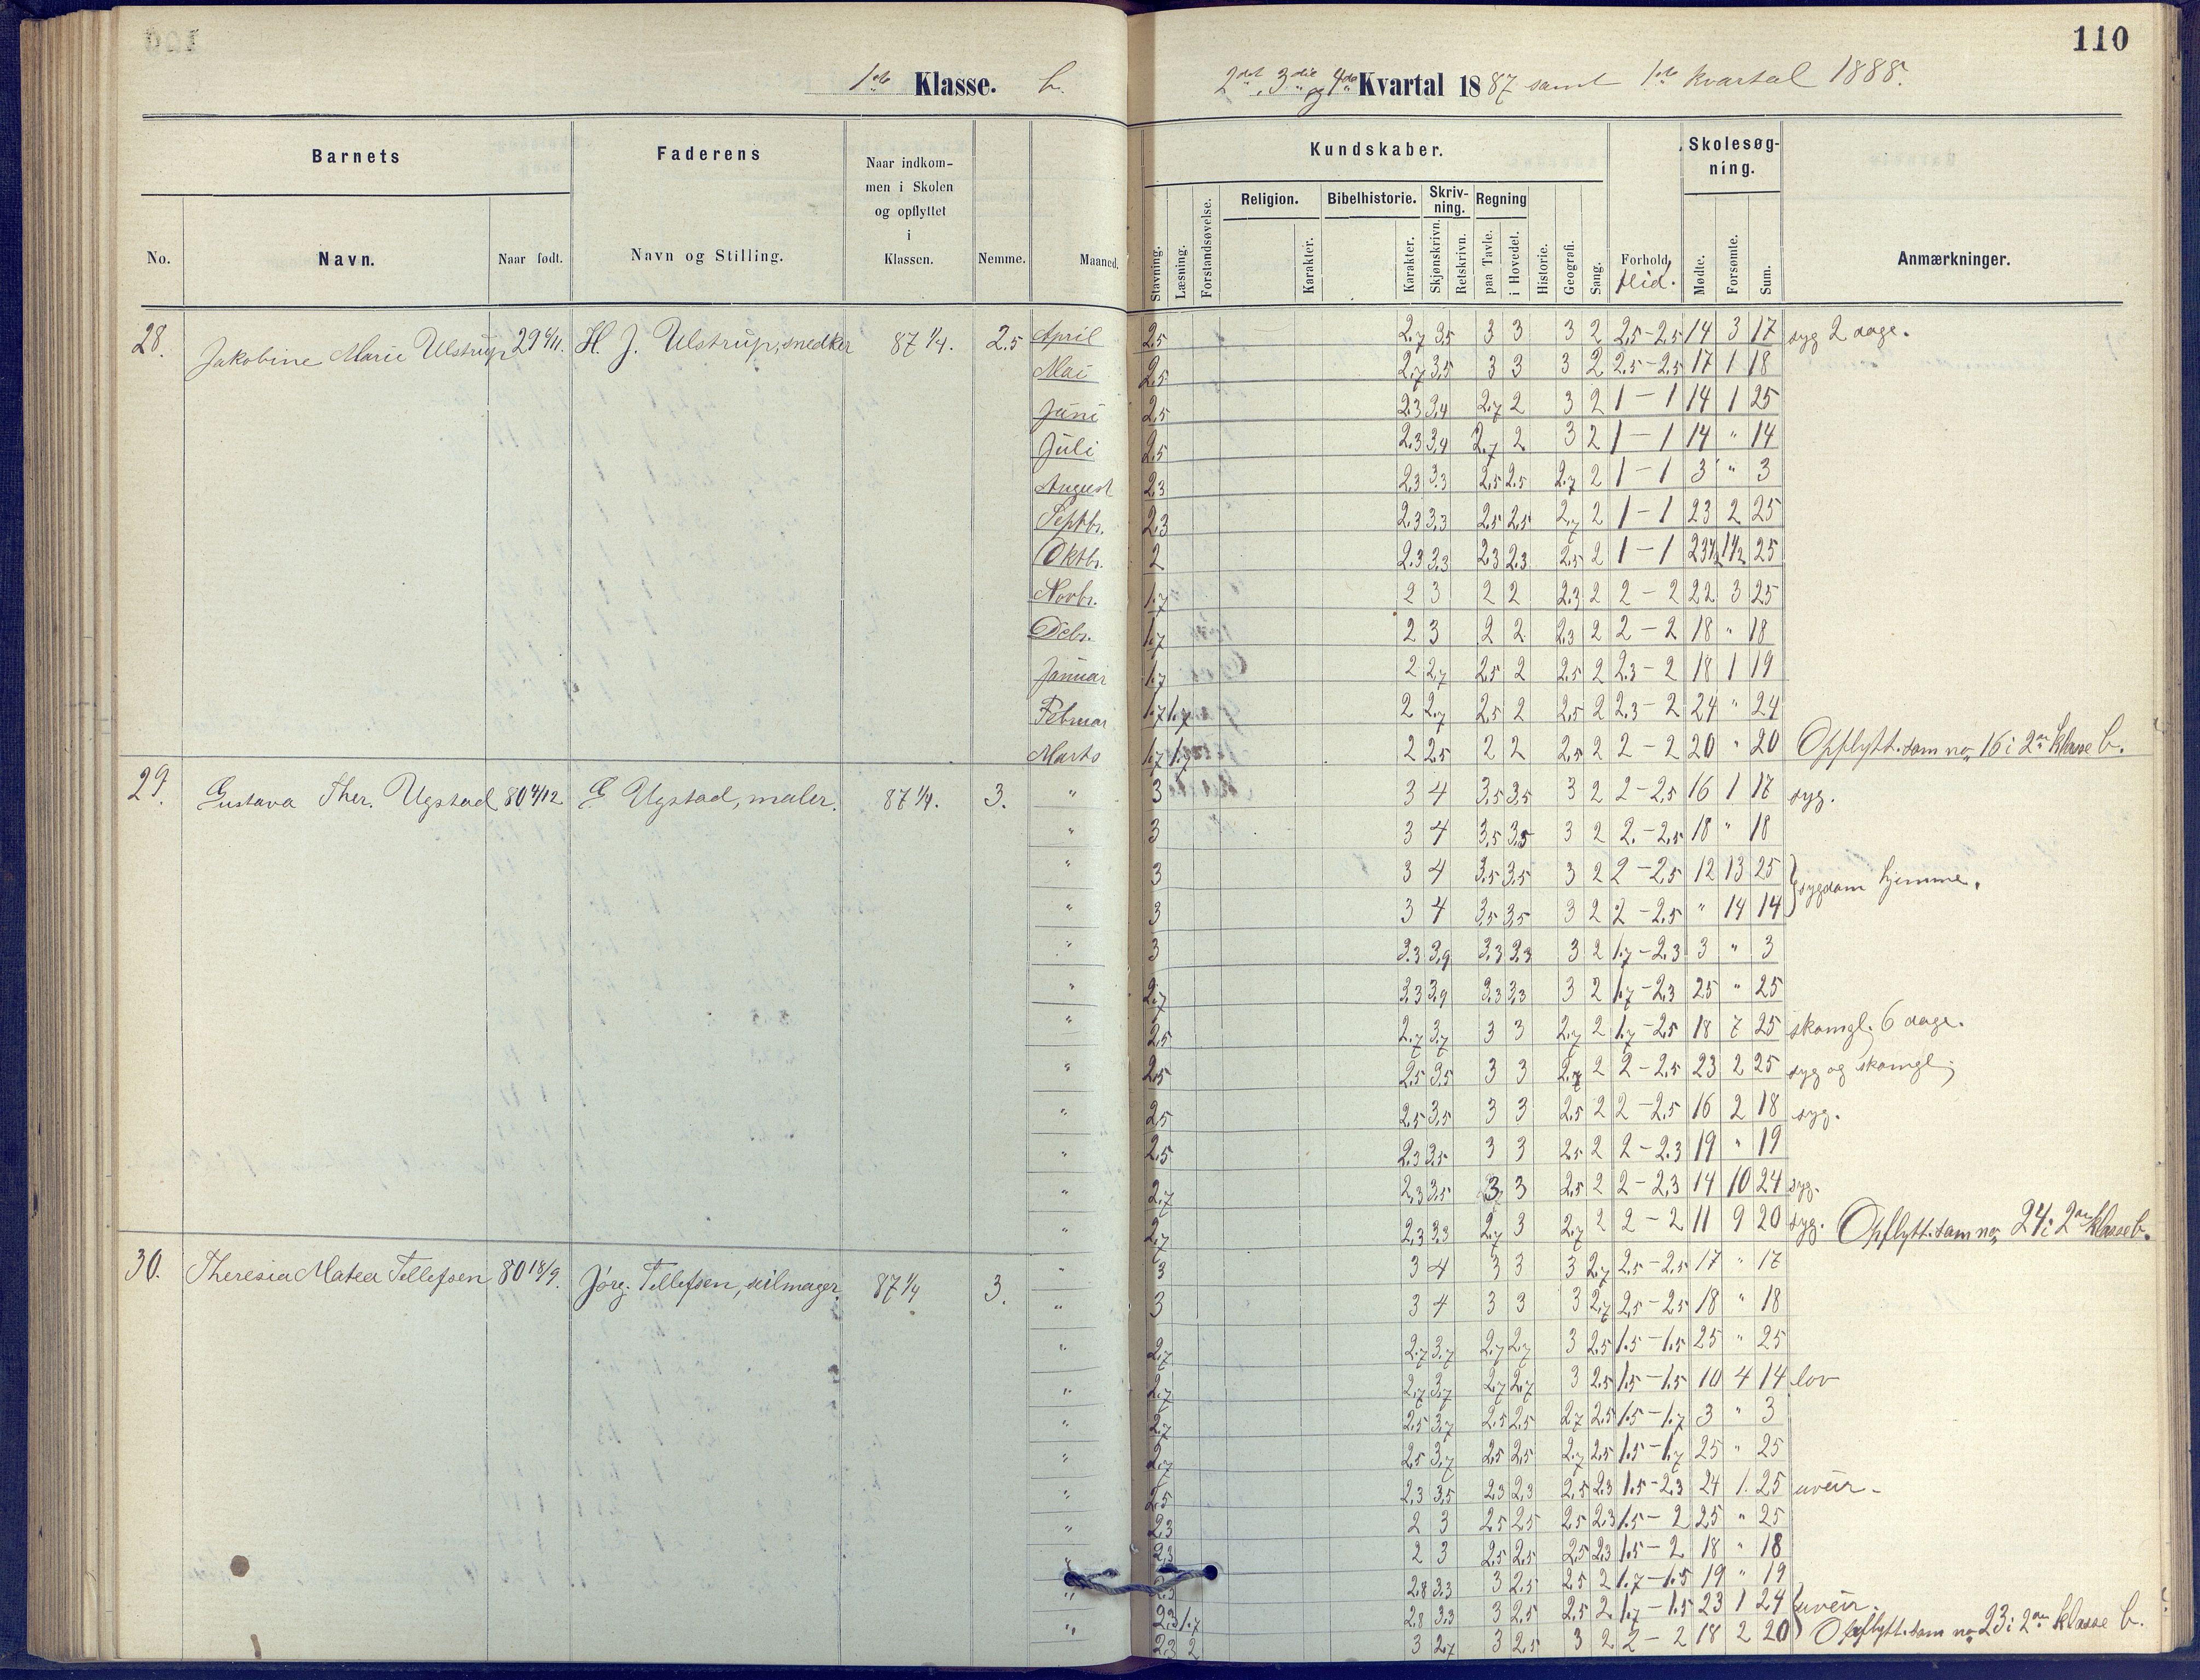 110
1ste Klasse. b.
2det, 3die og 4de Kvartal 1887 samt 1ste kvartal 1888.
Barnets Faderens Naar indkom- men i Skolen og opflyttet i Klassen. Nemme. Maaned.
No. Navn. Naar født. Navn og Stilling.
Kundskaber. Skolesøg- ning.
Stavning. Læsning. Forstandsøvelse. Religion. Karakter. Bibelhistorie. Karakter. Skriv- ning. Skjønskrivn. Retskrivn. Regning paa Tavle. i Hovedet. Historie. Geografi. Sang. Forhold flid. Mødte. Forsømte. Sum. Anmærkninger.
28. Jakobine Marie Ulstrup H. J. Ulstrup, snedker 87 1/4. 2.5 April 2.5 2.7 3.5 3 3 3 2 2.5-2.5 14 3 17 syg 2 dage.
Mai 2.5 2.7 3.5 3 3 3 2 2.5-2.5 17 1 18
Juni 2.5 2.3 3.4 2.7 2 3 2 1-1 14 1 25
Juli 2.5 2.3 3.4 2.7 2 3 2 1-1 14 " 14
August 2.3 2.3 3.3 2.5 2.5 2.7 2 1-1 3 " 3
Septbr. 2.3 2.3 3.3 2.5 2.5 2.7 2 1-1 23 2 25
Oktbr. 2 2.3 3.3 2.3 2.3 2.5 2 1-1 23 1/2 1 1/2 25
Novbr. 1.7 2 3 2 2 2.3 2 2-2 22 3 25
Debr. 1.7 2 3 2 2 2.3 2 2-2 18 " 18
Januar 1.7 2 2.7 2.5 2 2.5 2 2.3-2 18 1 19
Februar 1.7 1.7 2 2.7 2.5 2 2.5 2 2.3-2 24 " 24
Marts 1.7 1.7 2 2.5 2 2 2.5 2 2-2 20 " 20 Opflytt. som no 16 i 2en klasse b.
29. Gustava Ther. Ugstad 80 4/12 G Ugstad, maler. 87 1/4. 3. " 3 3 4 3.5 3.5 3 2 2-2.5 16 1 17 syg.
" 3 3 4 3.5 3.5 3 2 2-2.5 18 " 18
" 3 3 4 3.5 3.5 3 2 2-2.5 12 13 25 sygdom hjemme.
" 3 3 4 3.5 3.5 3 2 2-2.5 " 14 14
" 3 3.3 3.9 3.3 3.3 3 2 1.7-2.3 3 " 3
" 2.7 3.3 3.9 3.3 3.3 3 2 1.7-2.3 25 " 25
" 2.5 2.7 3.7 3 3 2.7 2 1.7-2.5 18 7 25 skomgl. 6 dage.
" 2.5 2.5 3.5 3 3 2.7 2 2-2.5 23 2 25 syg og skomgl;
" 2.5 2.5 3.5 3 3 2.5 2 2-2.5 16 2 18 syg.
" 2.5 2.3 3.5 3 3 2.5 2 2-2.3 19 " 19
" 2.7 2.3 3.5 3 3 2.5 2 2-2.3 14 10 24 syg.
" 2.7 2.3 3.3 2.7 3 2.7 2 2-2 11 9 20 syg. Opflytt. som no 24 i 2en klasse b.
30. Theresia Matea Tellefsen 80 18/9. Jörg. Tellefsen, seilmager. 87 1/4 3. " 3 3 4 3 3 3 2.7 2.5-2.5 17 " 17
" 3 3 4 3 3 3 2.7 2.5-2.5 18 " 18
" 2.7 2.7 3.7 2.7 2.7 3 2.5 1.5-1.5 25 " 25
" 2.7 2.7 3.7 2.7 2.7 3 2.5 1.5-1.5 10 4 14 lov
" 2.7 2.5 3.7 2.5 2.5 2.7 2.5 1.5-1.7 3 " 3
" 2.7 2.5 3.7 2.5 2.5 2.7 2.5 1.5-1.7 25 " 25
" 2.5 2.3 3.5 2.3 2.3 2.5 2.3 1.5-2.3 24 1 25 uveir.
" 2.3 2 3 2.5 2.5 2.5 2.3 1.5-2 25 " 25
" 2.3 2 3 2.5 2.5 2.5 2.3 1.5-2 18 " 18
" 2.8 3.3 3 2.5 2.5 2 1.7-1.5 19 " 19
" 2.3 1.7 2.8 3.3 3 2.5 2.5 2 1.7-1.5 23 1 24 uveir.
" 2.3 2 3 2.7 3 2.5 3 2 2-2 18 2 20 Opflytt. som no 23 i 2en klasse b.